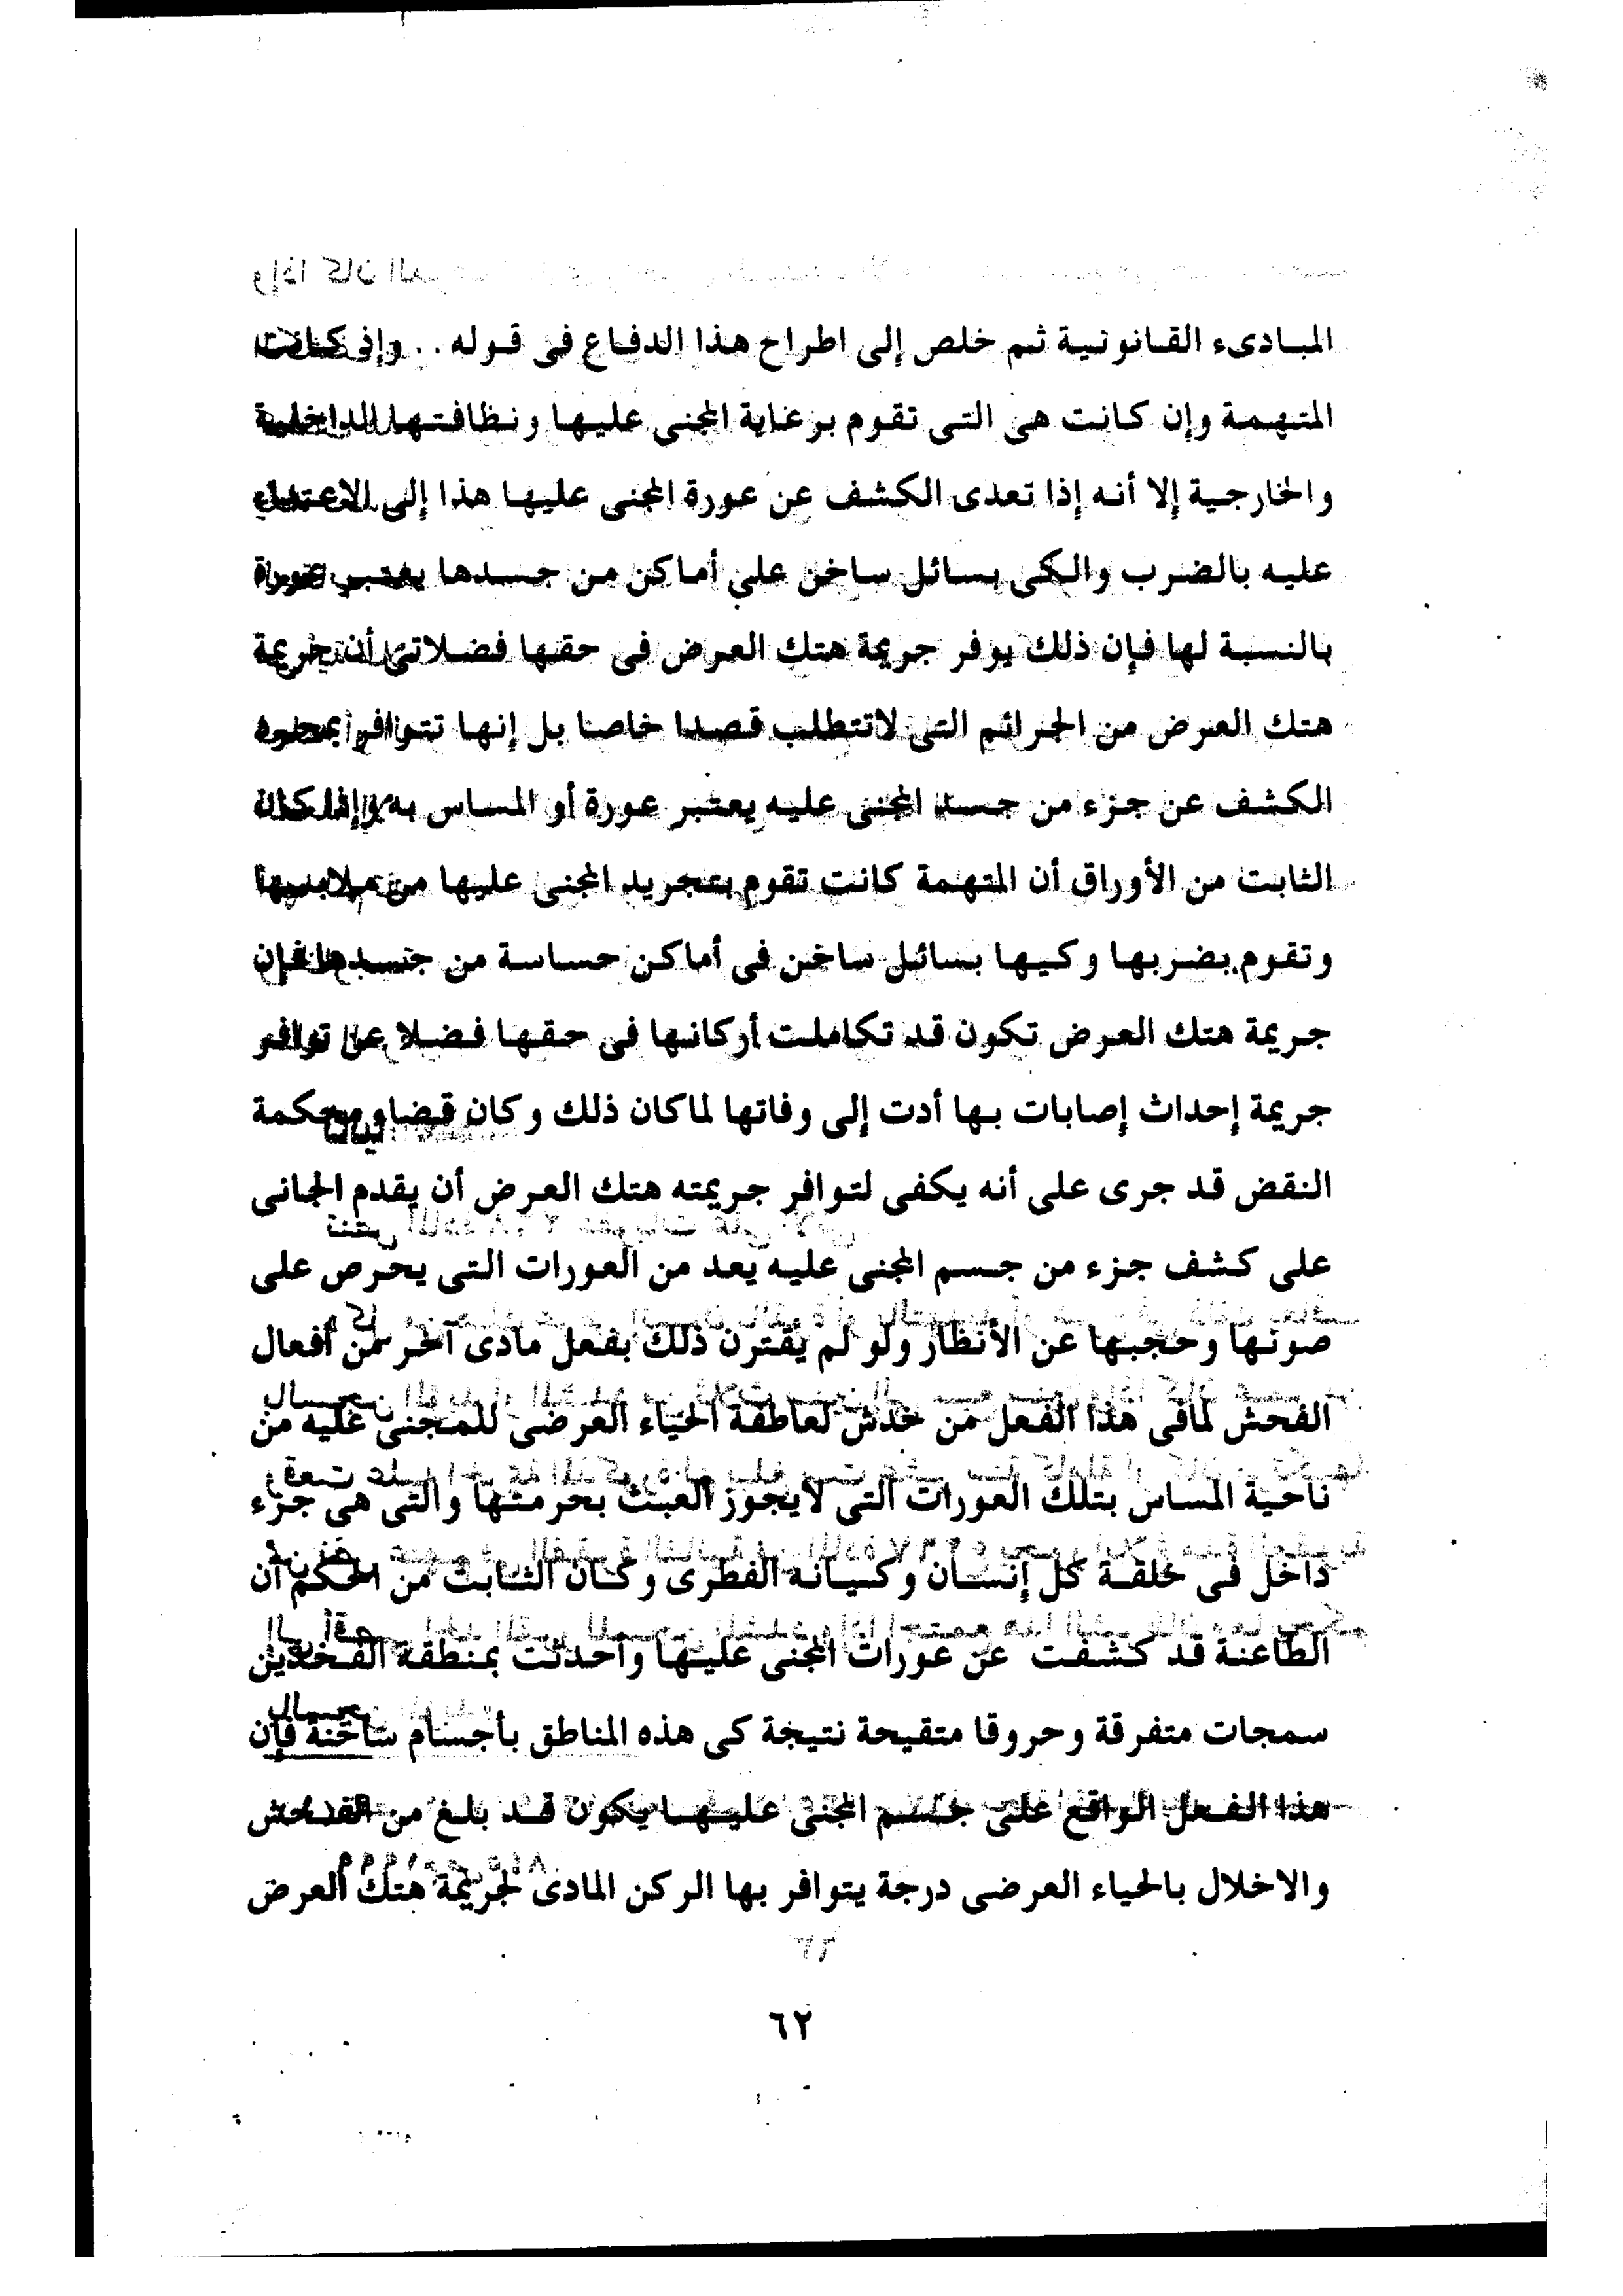 المبادىء القانونية ثم خلص إلى اطراح هذا الدفاع فى قوله .. وإذ كانت
المتهمة وإن كانت هى التى تقوم برعاية المجنى عليها ونظافتها الداخلية
والخارجية إلا أنه إذا تعدى الكشف عن عورة المجنى عليها هذا إلى الاعتداء
عليه بالضرب والكى بسائل ساخن على أماكن من جسدها يعتبر عورة
بالنسبة لها فإن ذلك يوفر جريمة هتك العرض فى حقها فضلا أن جريمة
هتك العرض من الجرائم التى لاتتطلب قصدا خاصا بل إنها تتوافر بمجرد
الكشف عن جزء من جسد المجنى عليه يعتبر عورة أو المساس به وإذا كان
الثابت من الأوراق أن المتهمة كانت تقوم بتجريد المجنى عليها من ملابسها
وتقوم بضربها وكيها بسائل ساخن فى أماكن حساسة من جسدها فإن
جريمة هتك العرض تكون قد تكاملت أركانها فى حقها فضلا عن توافر
جريمة إحداث إصابات بها أدت إلى وفاتها لماكان ذلك وكان قضاء محكمة
النقض قد جرى على أنه يكفى لتوافر جريمته هتك العرض أن يقدم الجانى
على كشف جزء من جسم المجنى عليه يعد من العورات التى يحرص على
صونها وحجبها عن الأنظار ولو لم يقترن ذلك بفعل مادى آخر من أفعال
الفحش لمافى هذا الفعل من خدش لعاطفة الحياء العرضى للمجنى عليه من
ناحية المساس بتلك العورات التى لايجوز العبث بحرمتها والتى هى جزء
داخل فى خلقة كل إنسان وكيانه الفطرى وكان الثابت من الحكم أن
الطاعنة قد كشفت عن عورات المجنى عليها وأحدثت بمنطقة الفخذين
سمجات متفرقة وحروقا متقيحة نتيجة كى هذه المناطق بأجسام ساخنة فإن
هذا الفعل الواقع على جسم المجنى عليها يكون قد بلغ من الفحش
والاخلال بالحياء العرضى درجة يتوافر بها الركن المادى لجريمة هتك العرض
٦٢